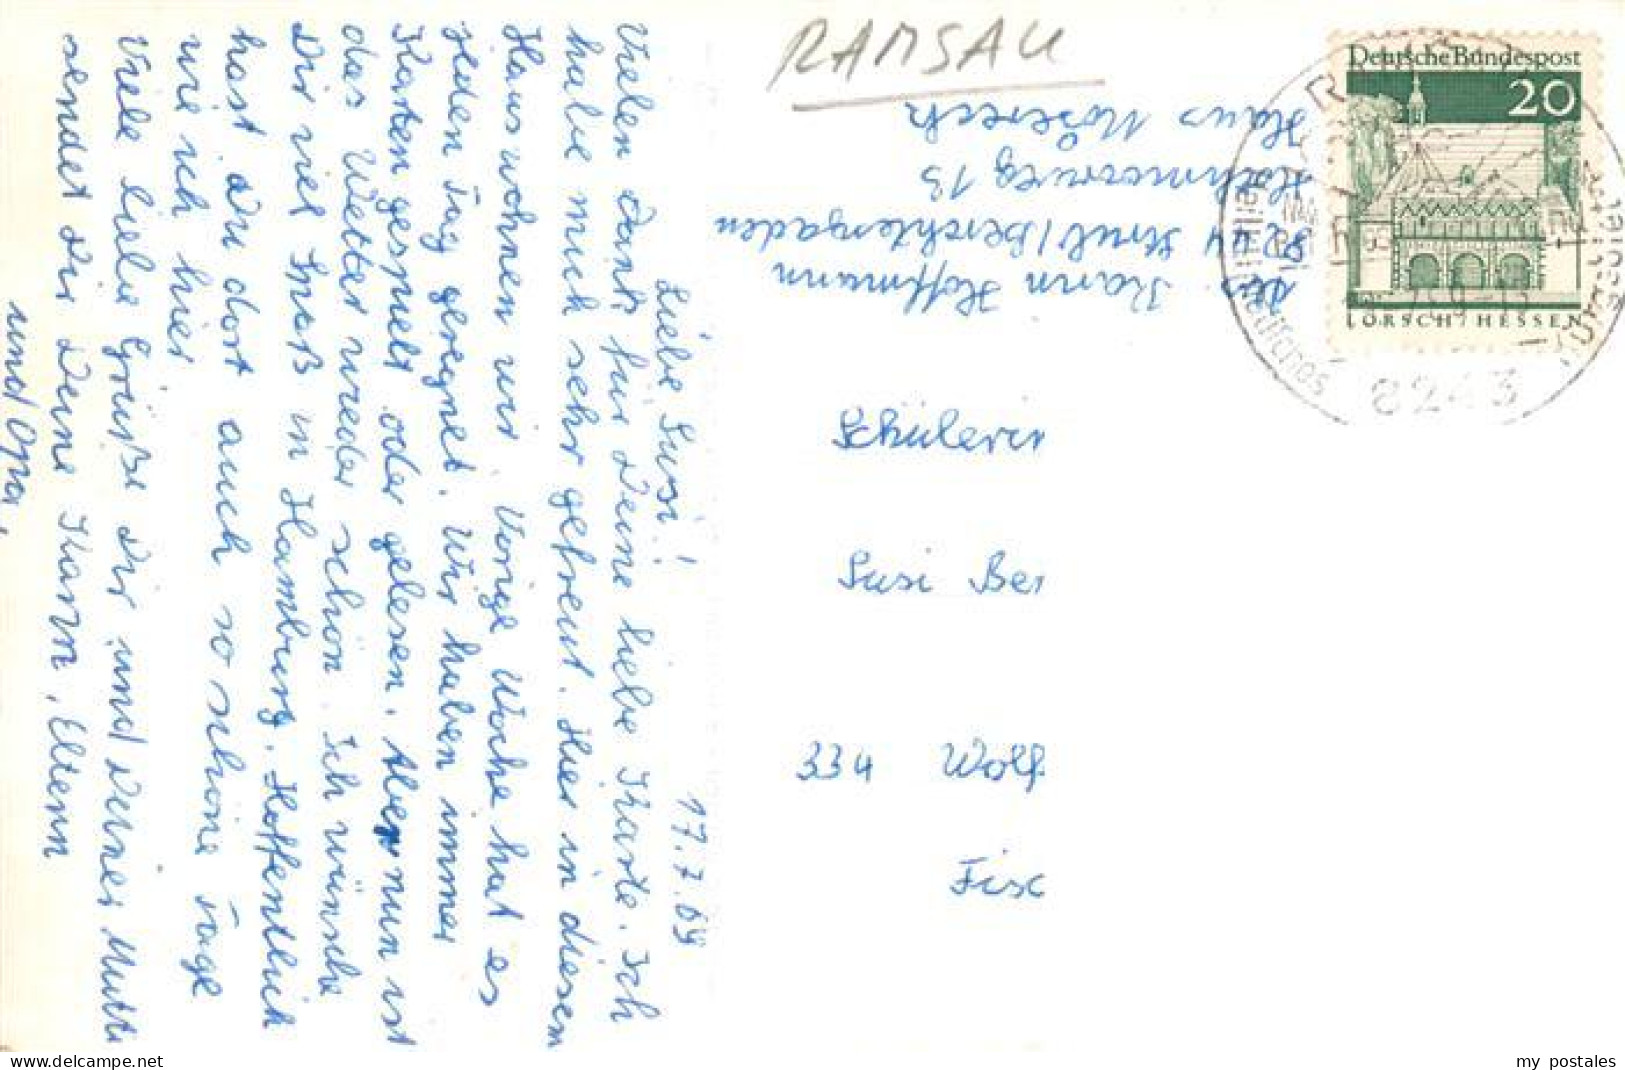 17.7.69
Liebe Susi!
Vielen Dank für Deine liebe Karte. Ich
habe mich sehr gefreut. Hier in diesem
Haus wohnen wir. Vorige Woche hat es
jeden Tag geregnet. Wir haben immer
Karten gespielt oder gelesen. Aber nun ist
das Wetter wieder schön. Ich wünsche
Dir viel Spaß in Hamburg. Hoffentlich
hast Du dort auch so schöne Tage
wie ich hier
Viele liebe Grüße Dir und Deiner Mutti
sendet Dir Deine Karin, Eltern
und Opa.
RAMSAU
Karin Hoffmann
8244 Strub/Berchtesgaden
Hochmoorweg 13
Haus Möserech
Deutsche Bundespost
20
LORSCH/HESSEN
8243
Schülerin
Susi Ber
334 Wolf
Fisc
delcampe.net
my_postales